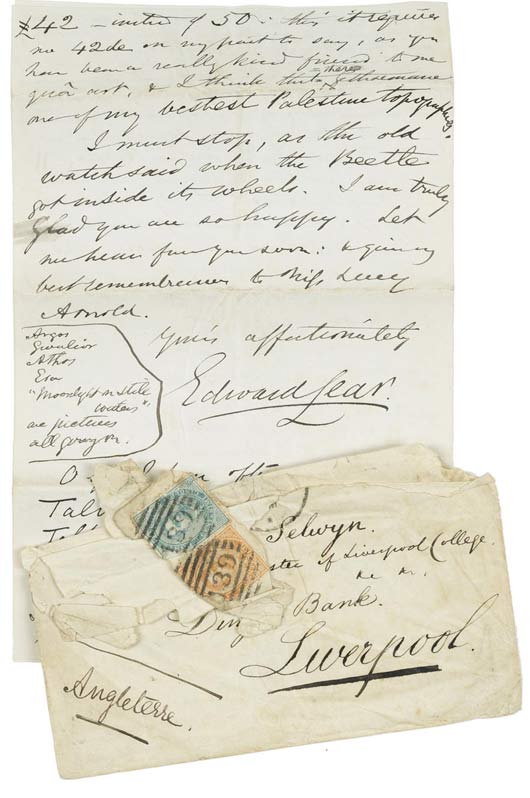 £42 — instead of 50: this it requires
no 42de on my part to say, as you
have been a really kind friend to me
quoâ art, & I think that
there
one of my bestest Palestine topography.
I must stop, as the old
watch said when the Beetle
got inside its wheels. I am truly
glad you are so happy. Let
me hear from you soon: & give my
best remembrances to Miss Lucy
Arnold.
Yours affectionately
Edward Lear.
Argos
Gwalior
Athos
Esa
"Moonlight on still
waters"
are pictures
all going on.
Selwyn.
of Liverpool College.
&c &c.
Din Bank.
Liverpool.
Angleterre.